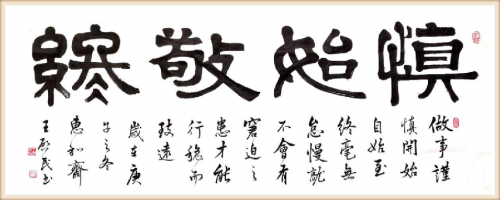 慎始敬終
做事謹
慎開始
自始至
終毫無
怠慢就
不會有
窘迫之
患才能
行穩而
致遠
歲在庚
子之冬
惠和齋